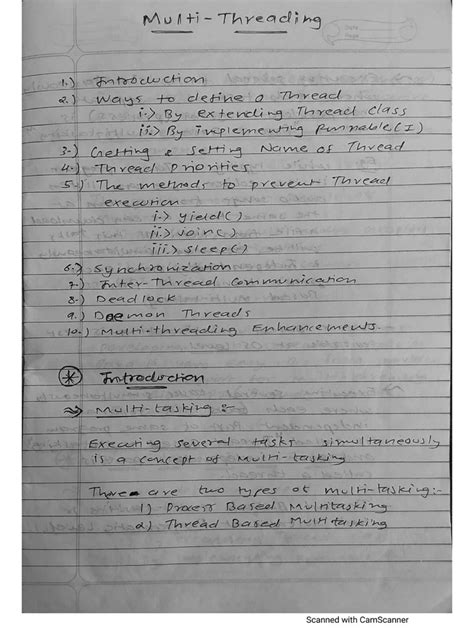 Multi-Threading
Date
Page
1.) Introduction
2.) Ways to define a Thread
i.> By Extending Thread Class
ii.> By implementing Runnable(I)
3.) Getting & Setting Name of Thread
4.) Thread Priorities
5.) The methods to prevent Thread
execution
i.> yield()
ii.> Join()
iii.> Sleep()
6.) Synchronization
7.) Inter-Thread Communication
8.) Deadlock
9.) Daemon Threads
10.) Multi-threading Enhancements.
* Introduction
⇒ Multi-tasking :-
Executing several tasks simultaneously
is a concept of Multi-tasking
There are two types of multi-tasking:-
1) Process Based Multitasking
2) Thread Based Multitasking
Scanned with CamScanner